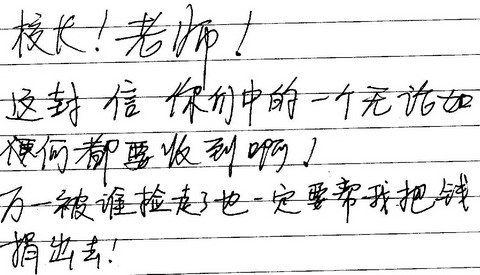 校长！老师！
这封信你们中的一个无论如
何都要收到啊！
万一被谁捡走了也一定要帮我把钱
捐出去！